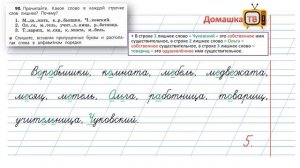 Прочитайте. Какое слово в каждой строчке лишнее? Почему?
1.
2.
3.
• Спишите, вставляя пропущенные буквы и располагая слова в алфавитном порядке.
Домашка ТВ
• В строке 1 лишнее слово - Чуковский - это собственное имя
существительное, в строке 2 лишнее слово - Ольга -
собственное существительное, в строке 3 лишнее слово -
товарищ - это одушевлённое имя существительное.
Воробьишки, комната, мебель, медвежата,
месяц, метель, Ольга, работница, товарищ,
учительница, Чуковский.
5.